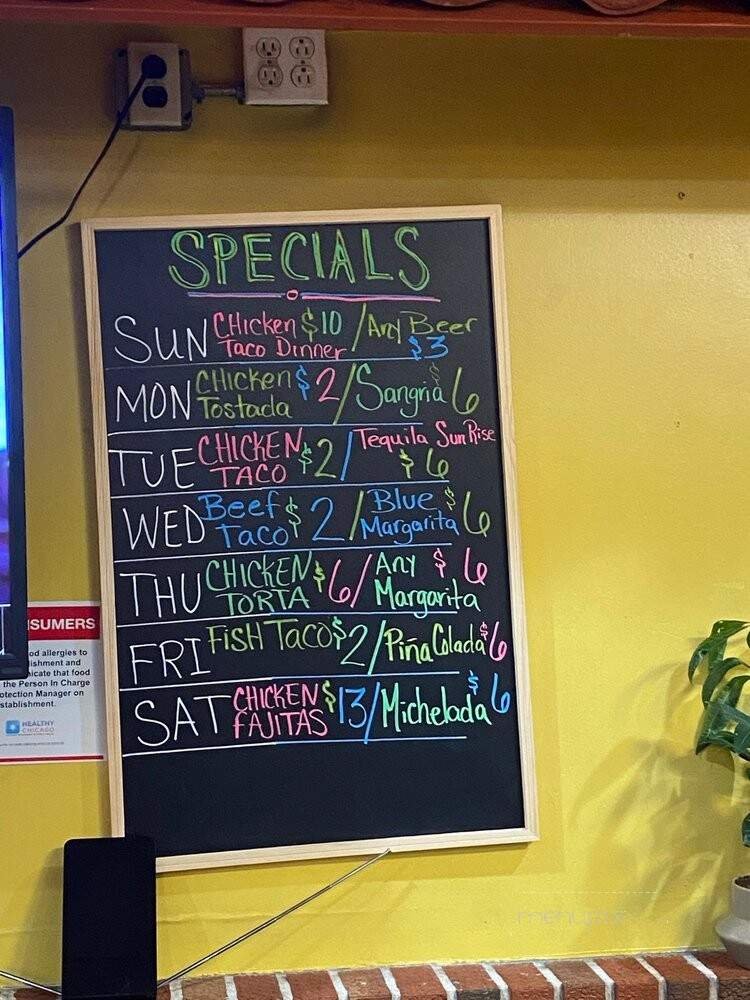 SPECIALS
SUN CHicken $10 / Any Beer
Taco Dinner $3
MON CHicken $2 / Sangria $6
Tostada
TUE CHICKEN $2 / Tequila SunRise
TACO $6
WED Beef $2 / Blue $6
Taco Margarita
THU CHICKEN $6 / Any $6
TORTA Margarita
FRI FISH TACO $2 / Piña Colada $6
SAT CHICKEN $13 / Michelada $6
FAJITAS
SUMERS
od allergies to
lishment and
icate that food
the Person In Charge
otection Manager on
stablishment.
HEALTHY
CHICAGO
menupix